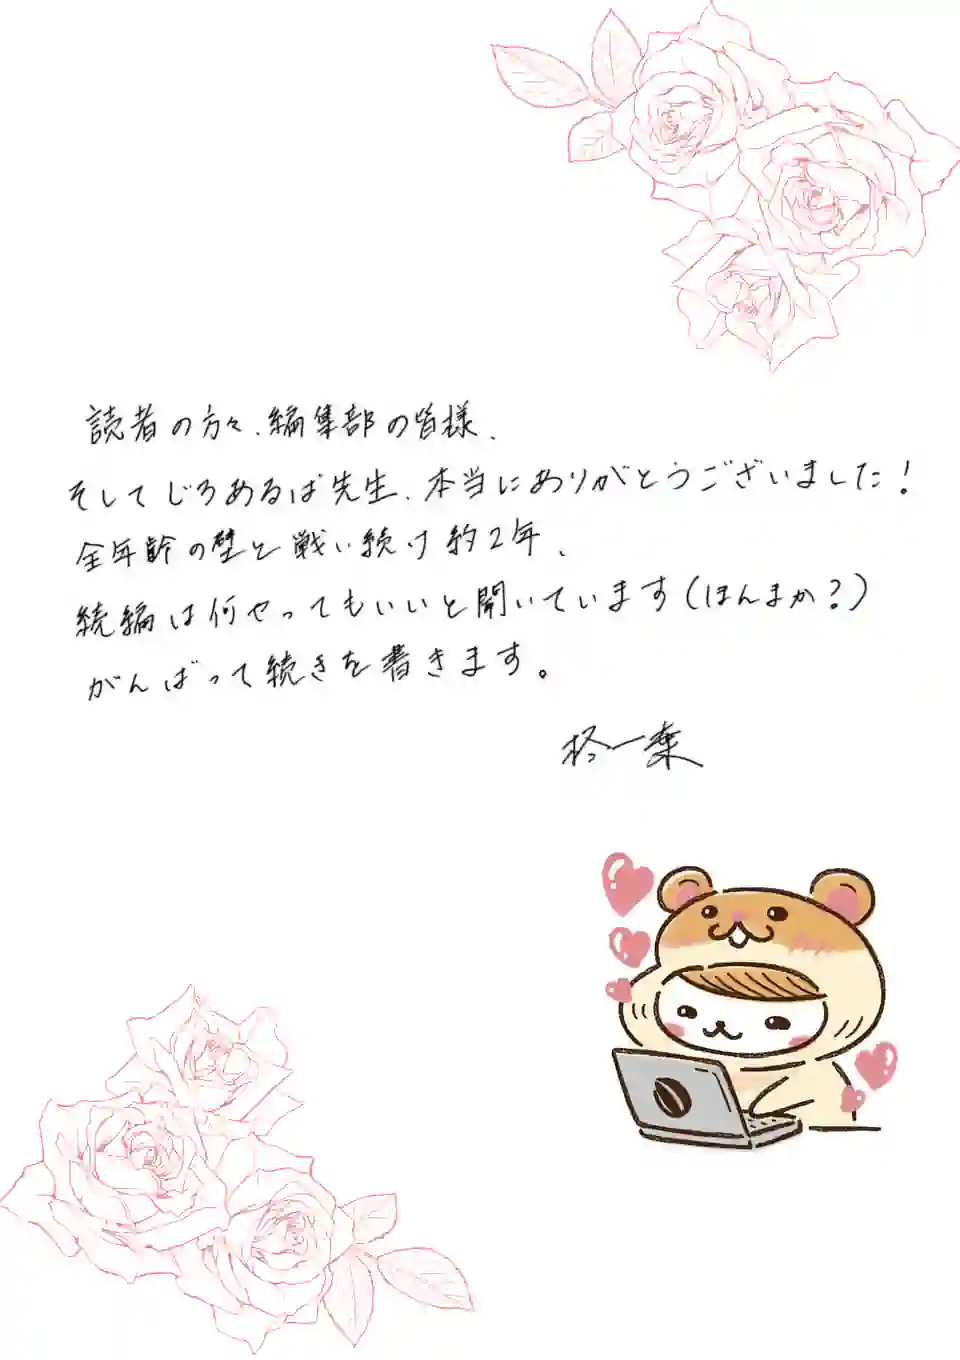 読者の方々、編集部の皆様、
そしてじろあるば先生、本当にありがとうございました！
全年齢の壁と戦い続け約2年、
続編は何やってもいいと聞いています(ほんまか？)
がんばって続きを書きます。
柊一葉